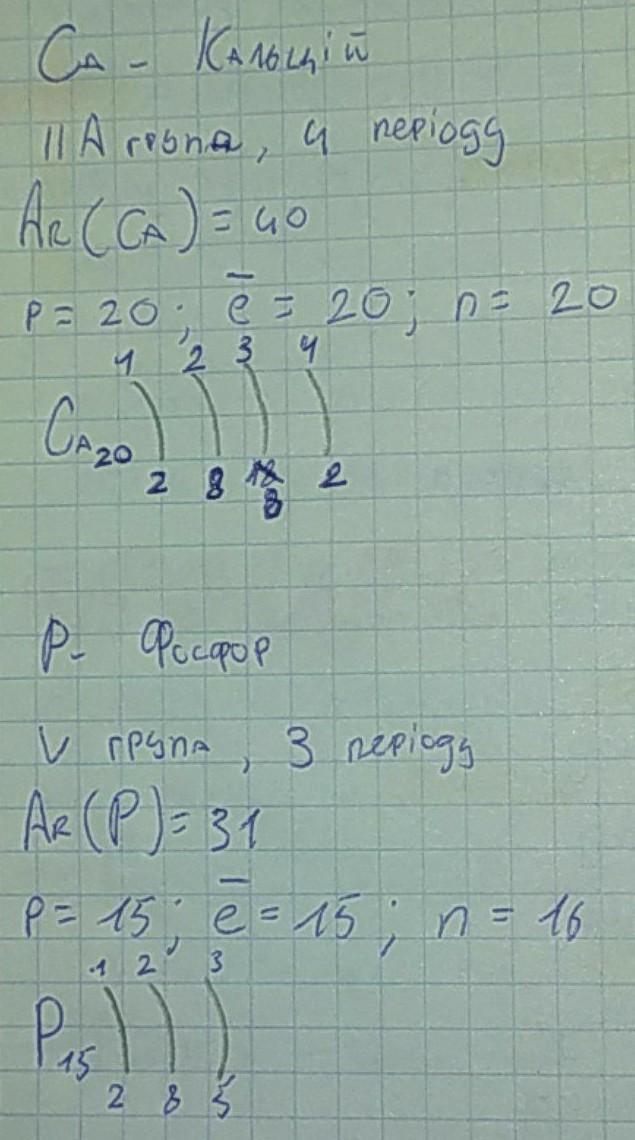 Ca - Кальцій
II А група, 4 періоду
Ar(Ca) = 40
p = 20; e̅ = 20; n = 20
1 2 3 4
Ca20 ) ) ) )
2 8 8 2
P - Фосфор
V група, 3 періоду
Ar(P) = 31
p = 15; e̅ = 15; n = 16
1 2 3
P15 ) ) )
2 8 5